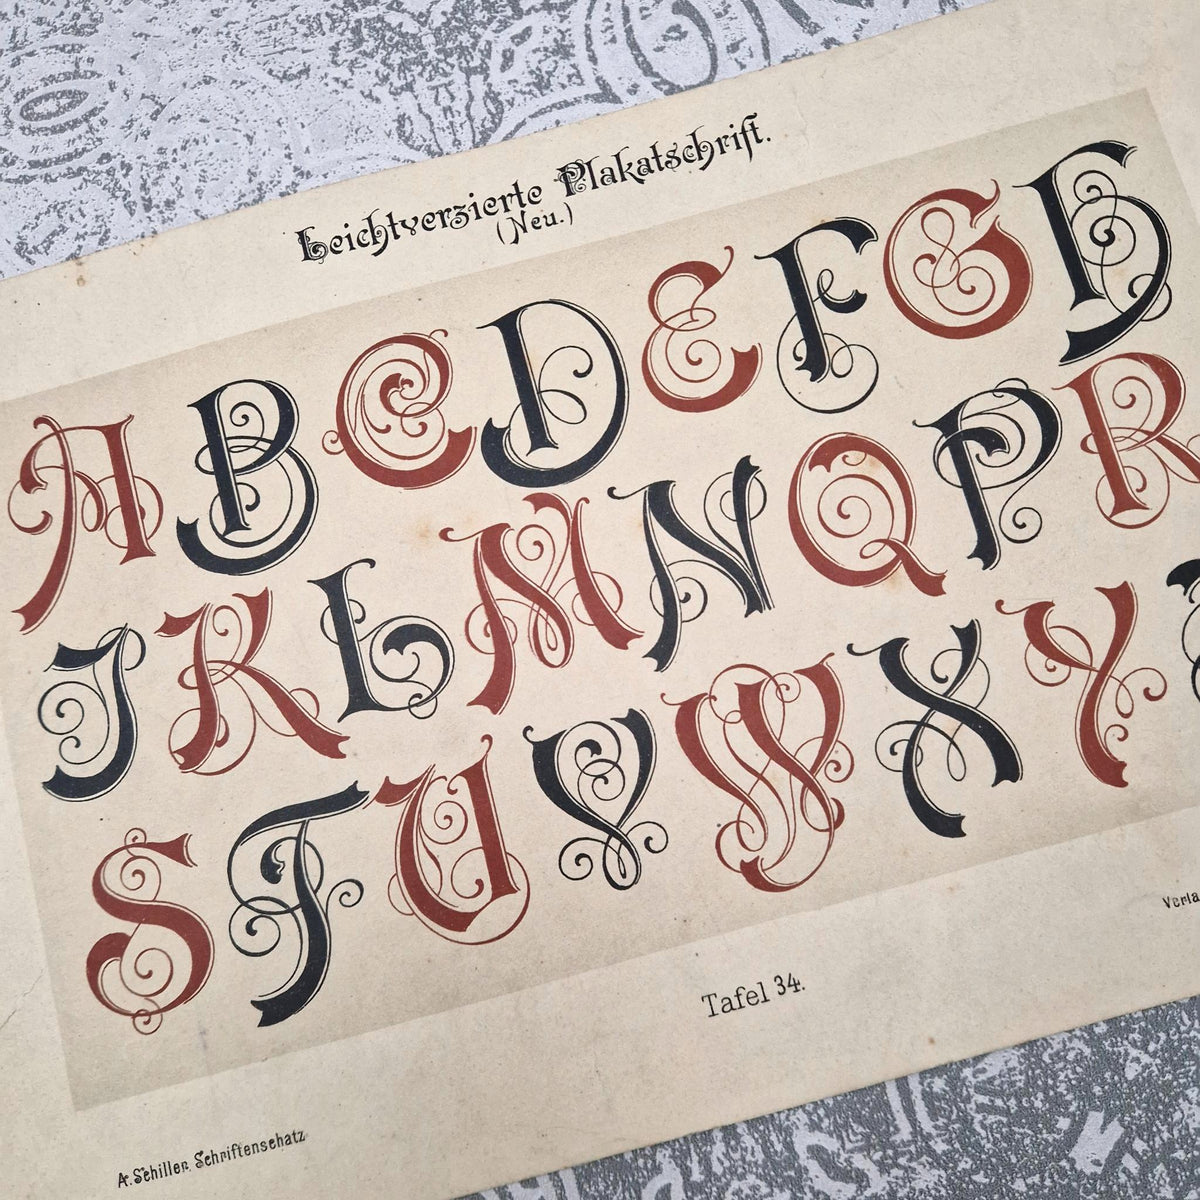 Leichtverzierte Plakatschrift.
(Neu.)
A B C D E F G H
J K L M N Q P R
S T U V W X Y
Tafel 34.
A. Schiller, Schriftenschatz